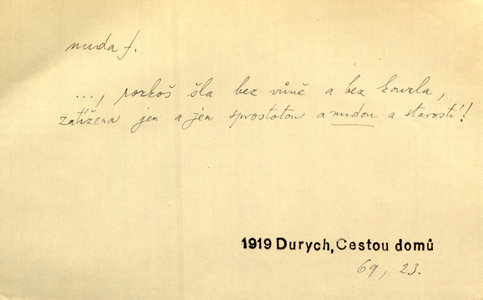 nuda f.
..., rozkoš šla bez vůně a bez kouzla,
zatížena jen a jen sprostotou a nudou a starostí!
1919 Durych, Cestou domů
69, 23.